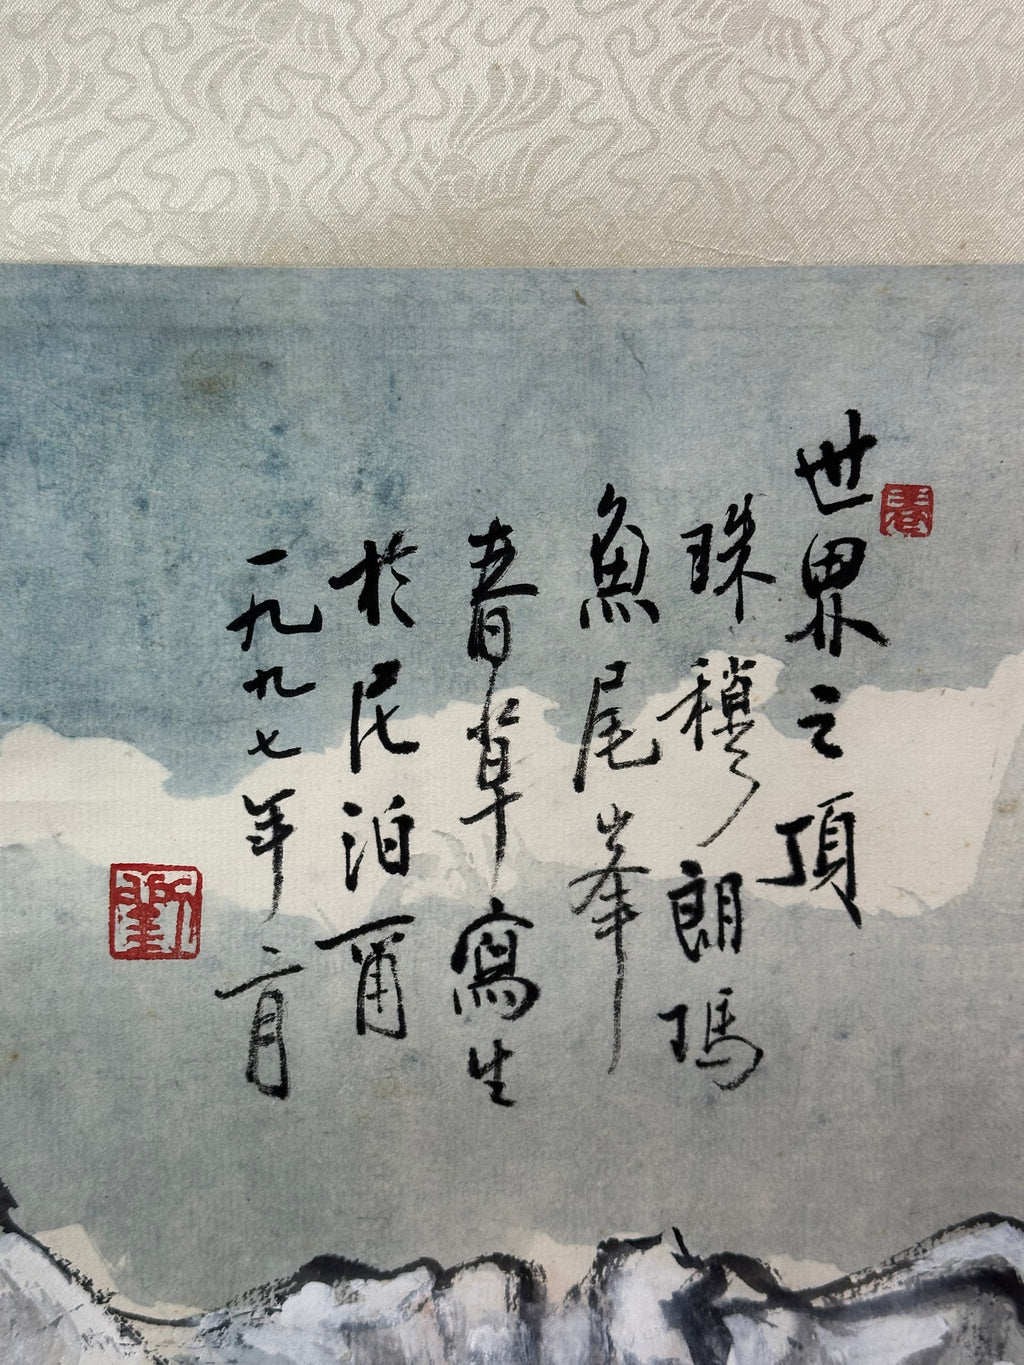 春
世界之頂
珠穆朗瑪
魚尾峯
春草寫生
於尼泊爾
一九九七年二月
劉